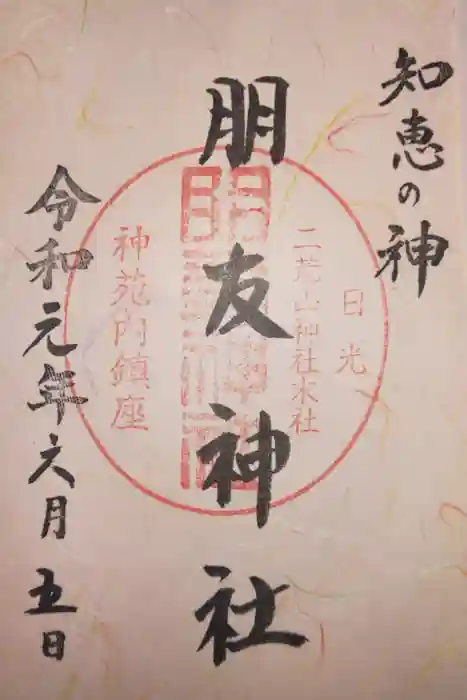 知恵の神
日光
二荒山神社本社
朋友神社
神苑内鎮座
令和元年六月五日